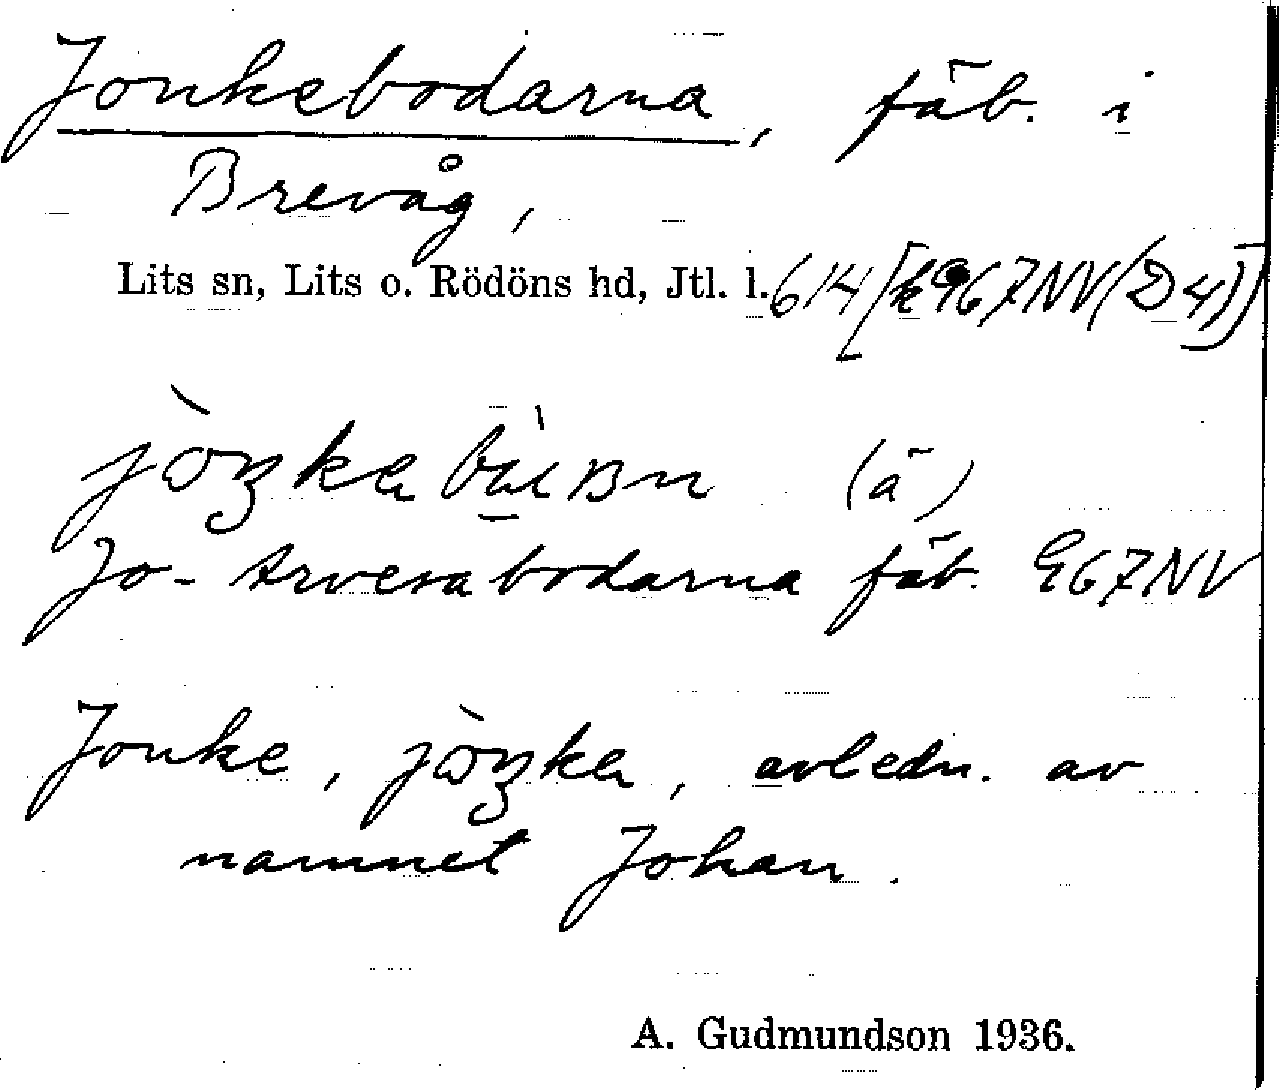 Jonkebodarna, fäb. i
Brevåg,
Lits sn, Lits o. Rödöns hd, Jtl. l. 614 [k 967NV(D4)]
(ä)
Jo-Arvesabodarna fäb. 967NV
Jonke, avledn. av
namnet Johan.
A. Gudmundson 1936.